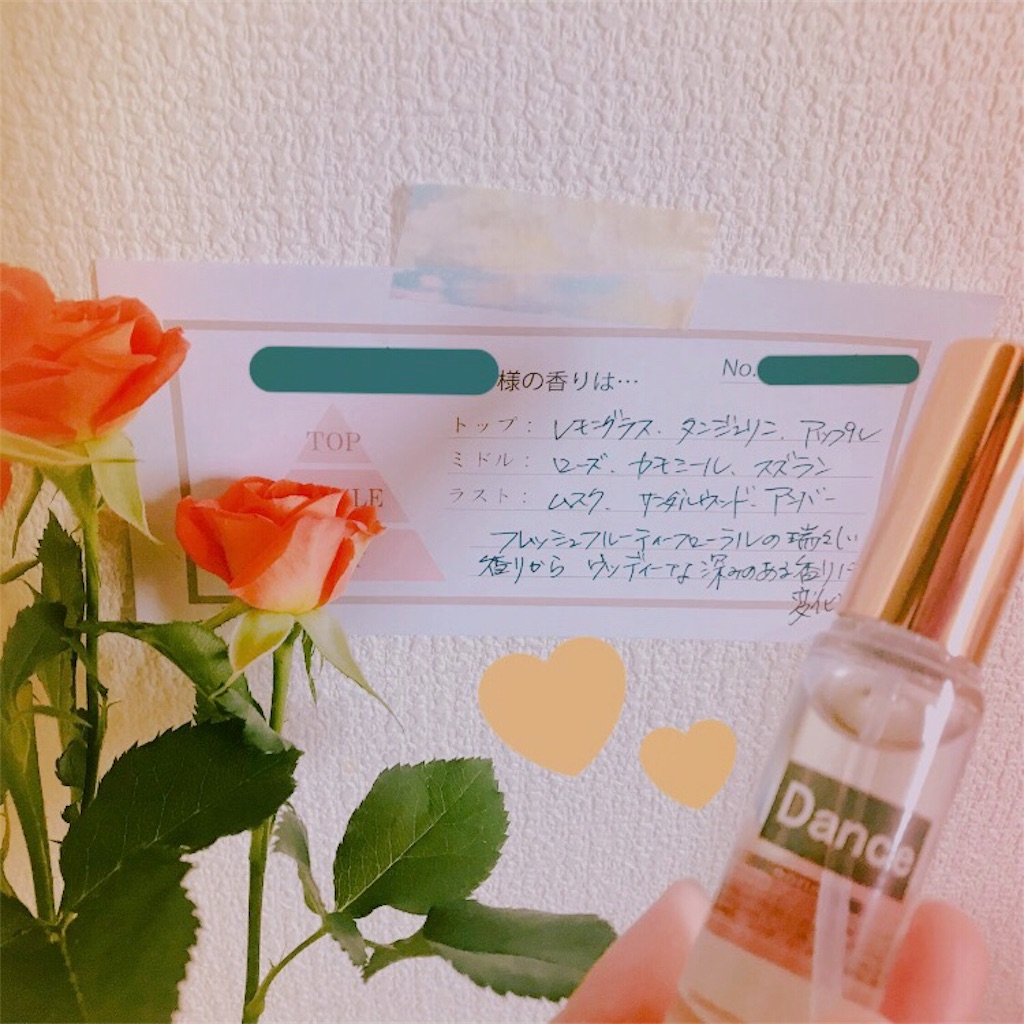 様の香りは…
No.
TOP
トップ: レモングラス、タンジェリン、アップル
ミドル: ローズ、カモミール、スズラン
ラスト: ムスク、サンダルウッド、アンバー
フレッシュフルーティーフローラルの瑞々しい
香りから ウッディーな深みのある香りに
変化
Dance